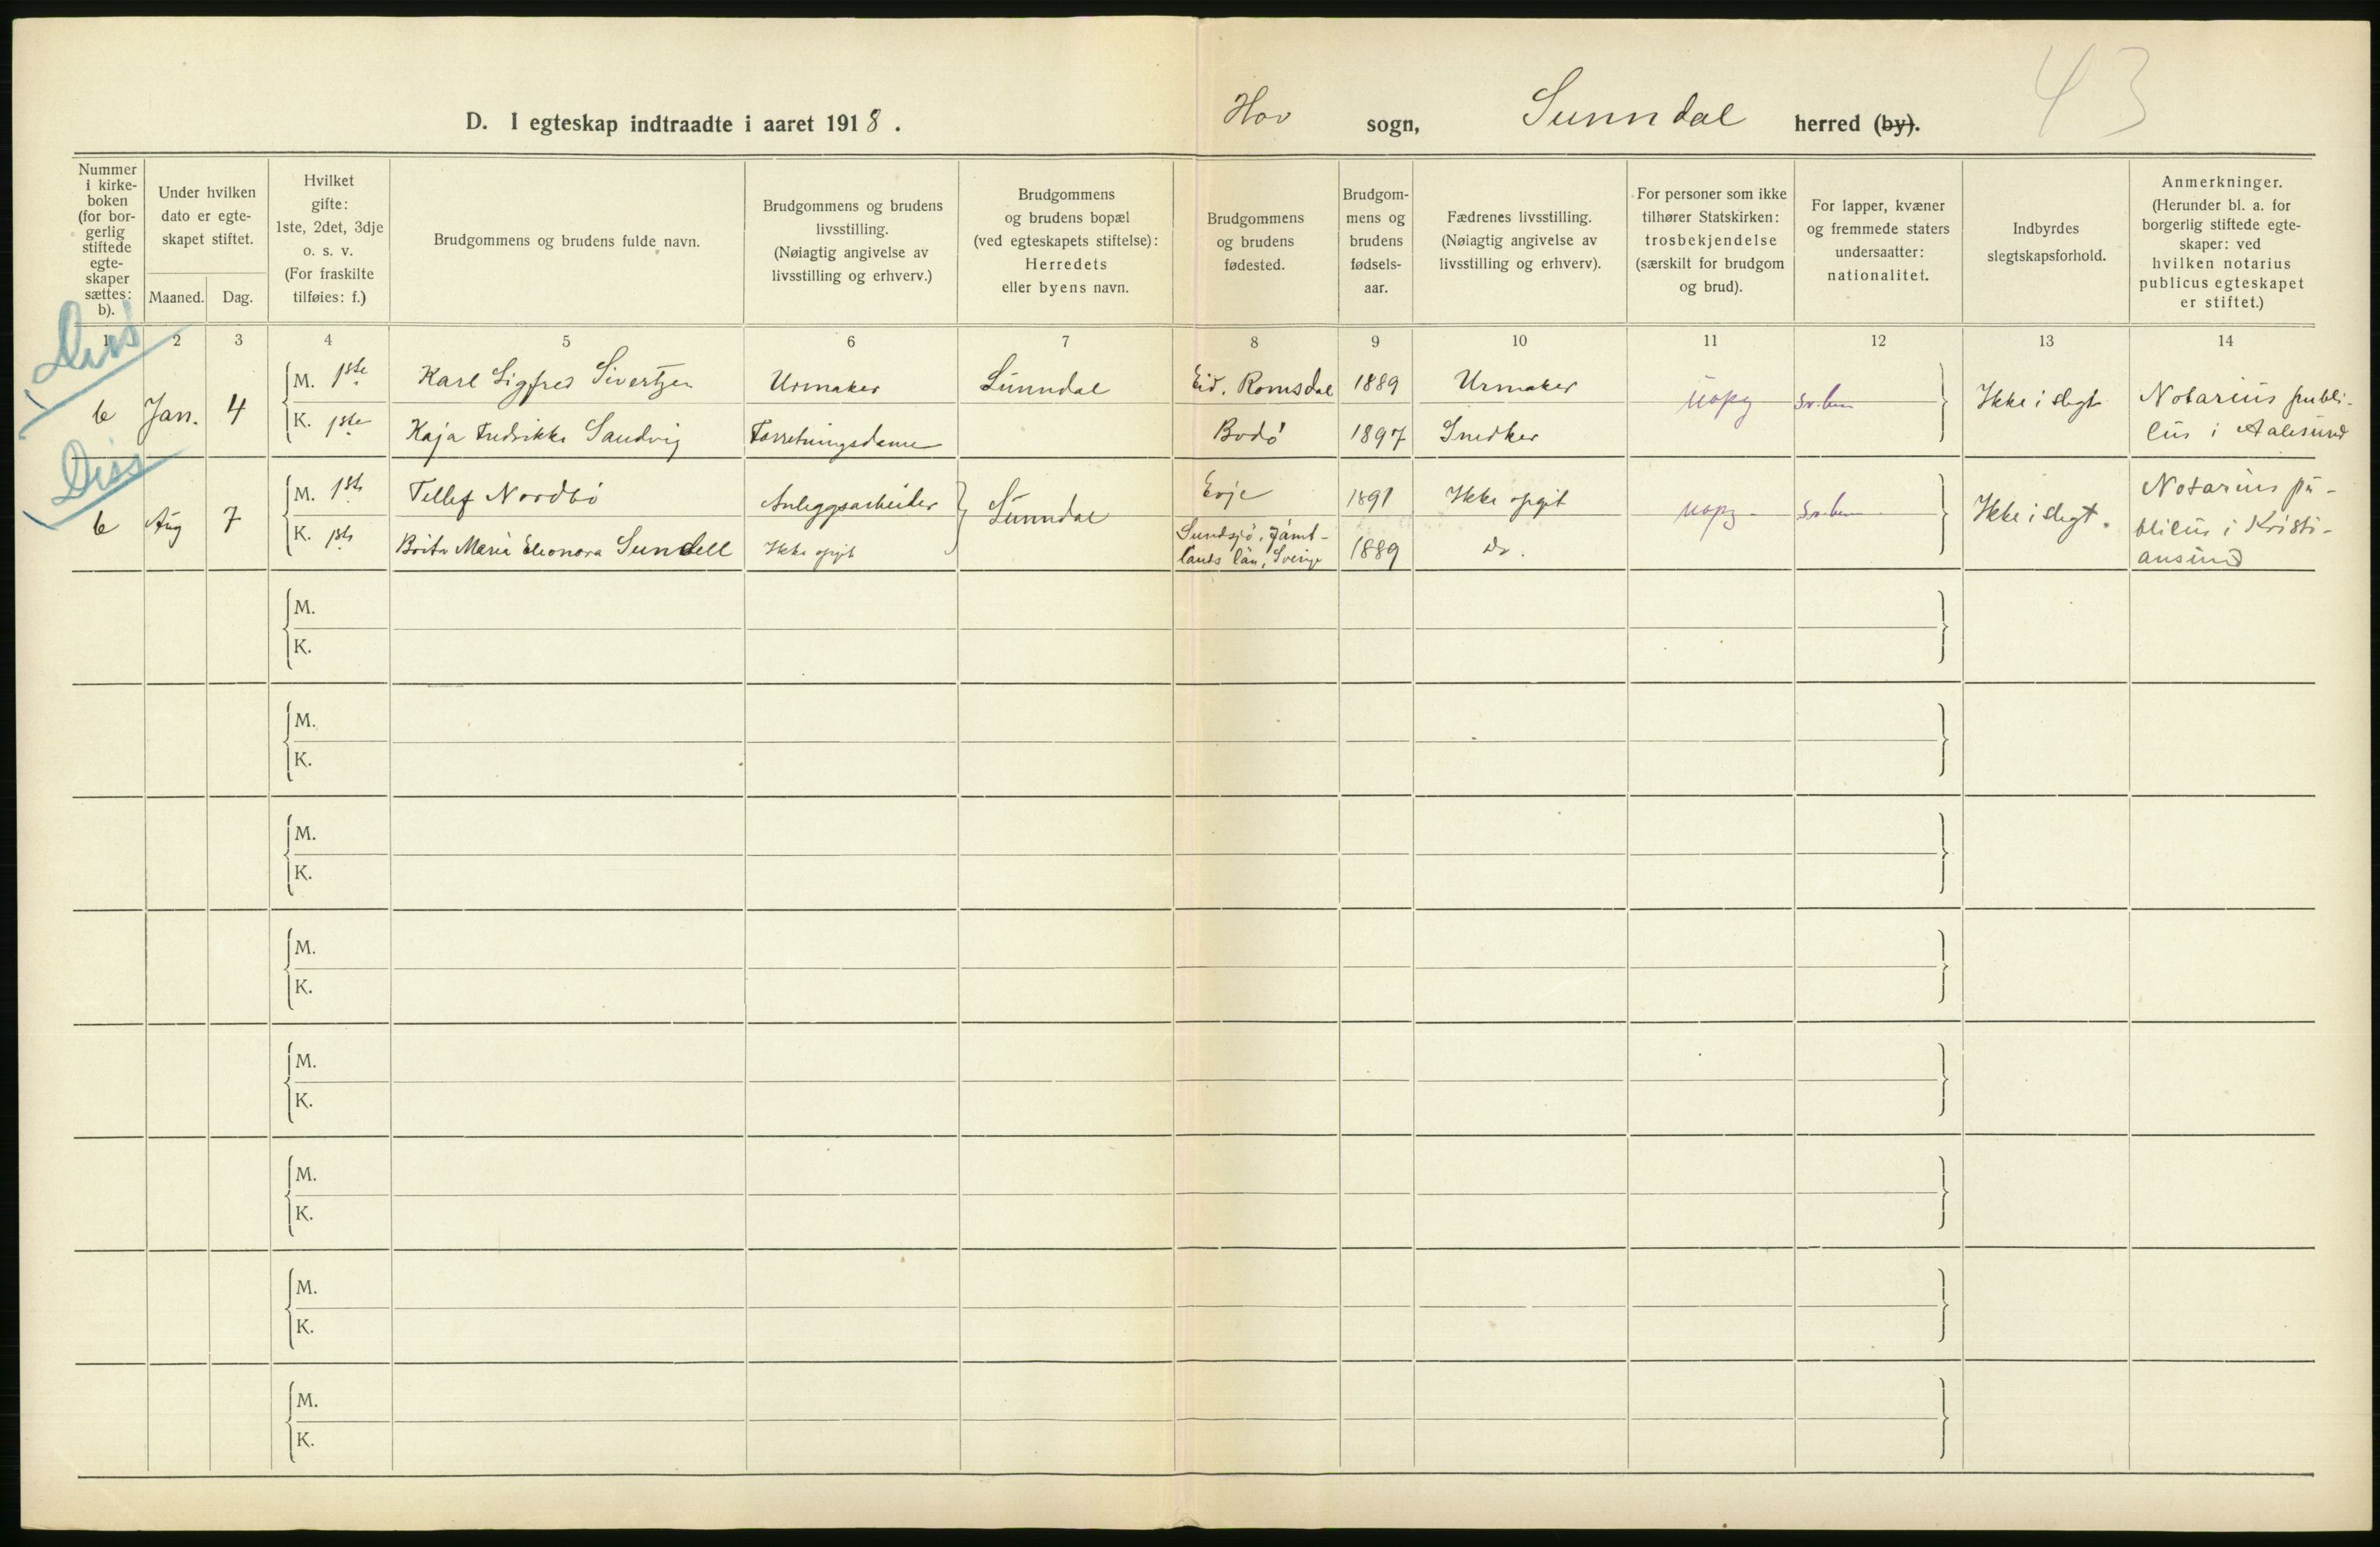 D. I egteskap indtraadte i aaret 1918.
Hov sogn, Sunndal herred (by).
43
Nummer
i kirke-
boken
(for bor-
gerlig
stiftede
egte-
skaper
sættes:
b).
Under hvilken
dato er egte-
skapet stiftet.
Maaned. Dag.
Hvilket
gifte:
1ste, 2det, 3dje
o. s. v.
(For fraskilte
tilføies: f.)
Brudgommens og brudens fulde navn.
Brudgommens og brudens
livsstilling.
(Nøiagtig angivelse av
livsstilling og erhverv.)
Brudgommens
og brudens bopæl
(ved egteskapets stiftelse):
Herredets
eller byens navn.
Brudgommens
og brudens
fødested.
Brudgom-
mens og
brudens
fødsels-
aar.
Fædrenes livsstilling.
(Nøiagtig angivelse av
livsstilling og erhverv).
For personer som ikke
tilhører Statskirken:
trosbekjendelse
(særskilt for brudgom
og brud).
For lapper, kvæner
og fremmede staters
undersaatter:
nationalitet.
Indbyrdes
slegtskapsforhold.
Anmerkninger.
(Herunder bl. a. for
borgerlig stiftede egte-
skaper: ved
hvilken notarius
publicus egteskapet
er stiftet.)
1 2 3 4 5 6 7 8 9 10 11 12 13 14
Diss
b Jan. 4
M. 1ste Karl Sigfred Sivertzen Urmaker Sunndal Eid, Romsdal 1889 Urmaker
K. 1ste Kaja Fredrikke Sandvig Forretningsdame Bodø 1897 Snedker
uopg Ikke i slegt
Notarius publi-
cus i Aalesund
Diss
b Aug 7
M. 1ste Tellef Nordbö Anleggsarbeider Sunndal Evje 1891 Ikke opgit
K. 1ste Brita Maria Eleonora Sundell Ikke opgit Sundsjö, Jämt-
lands län, Sverige 1889 Do.
uopg Ikke i slegt.
Notarius pu-
blicus i Kristi-
ansund
M.
K.
M.
K.
M.
K.
M.
K.
M.
K.
M.
K.
M.
K.
M.
K.